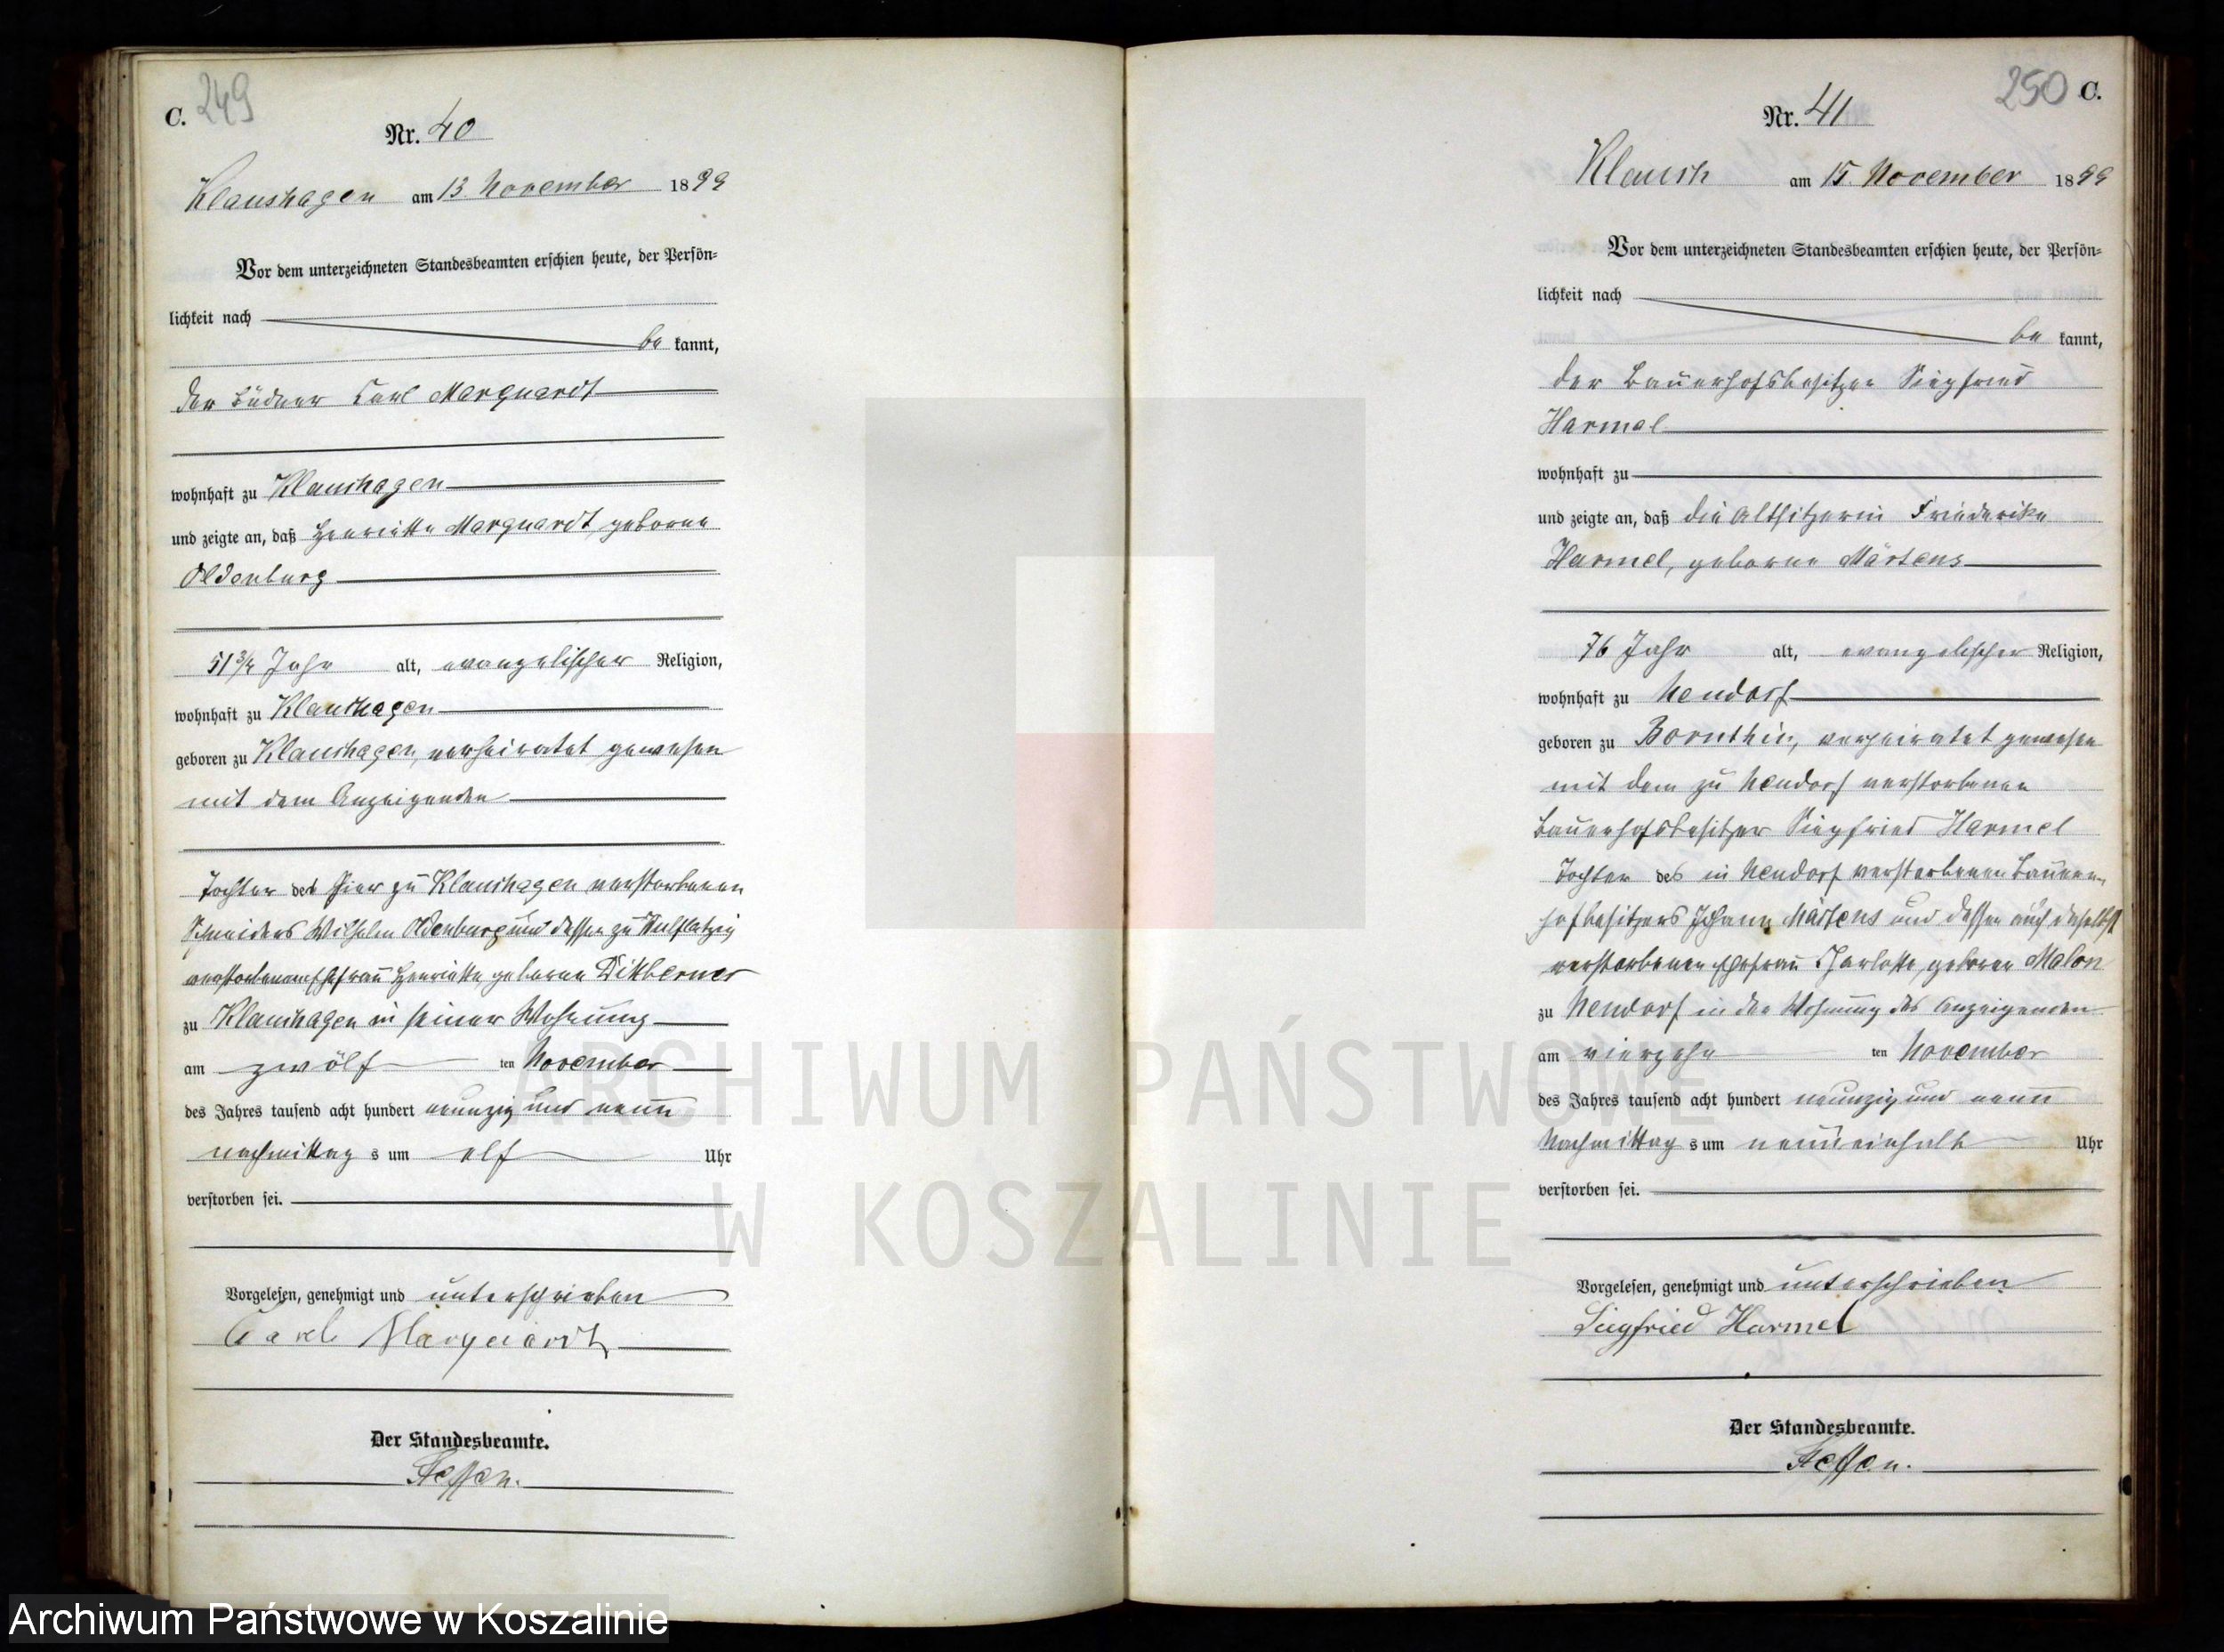 C. 249
Nr. 40
Klaushagen am 13. November 1899
Vor dem unterzeichneten Standesbeamten erschien heute, der Persön-
lichkeit nach
be kannt,
der Büdner Carl Marquardt
wohnhaft zu Klaushagen
und zeigte an, daß Henriette Marquardt, geborne
Oldenburg
51 3/4 Jahr alt, evangelischer Religion,
wohnhaft zu Klaushagen
geboren zu Klaushagen, verheiratet gewesen
mit dem Anzeigenden
Tochter des hier zu Klaushagen verstorbenen
Schneiders Wilhelm Oldenburg und dessen zu Wulflatzig
verstorbenen Ehefrau Henriette, geborne Dittberner
zu Klaushagen in seiner Wohnung
am zwölf ten November
des Jahres tausend acht hundert neunzig und neun
nachmittag s um elf Uhr
verstorben sei.
Vorgelesen, genehmigt und unterschrieben
Carl Marquardt
Der Standesbeamte.
250 C.
Nr. 41
Klaush am 15. November 1899
Vor dem unterzeichneten Standesbeamten erschien heute, der Persön-
lichkeit nach
be kannt,
der Bauerhofsbesitzer Siegfried
Harmel
wohnhaft zu
und zeigte an, daß die Altsitzerin Friederike
Harmel, geborne Märtens
76 Jahr alt, evangelischer Religion,
wohnhaft zu Neudorf
geboren zu Bornthin, verheiratet gewesen
mit dem zu Neudorf verstorbenen
Bauerhofsbesitzer Siegfried Harmel
Tochter des in Neudorf verstorbenen Bauer-
hofbesitzers Johann Märtens und dessen auch daselbst
verstorbenen Ehefrau Charlotte, geboren Malon
zu Neudorf in der Wohnung des Anzeigenden
am vierzehn ten November
des Jahres tausend acht hundert neunzig und neun
Nachmittag s um neuneinhalb Uhr
verstorben sei.
Vorgelesen, genehmigt und unterschrieben
Siegfried Harmel
Der Standesbeamte.
ARCHIWUM PAŃSTWOWE
W KOSZALINIE
Archiwum Państwowe w Koszalinie